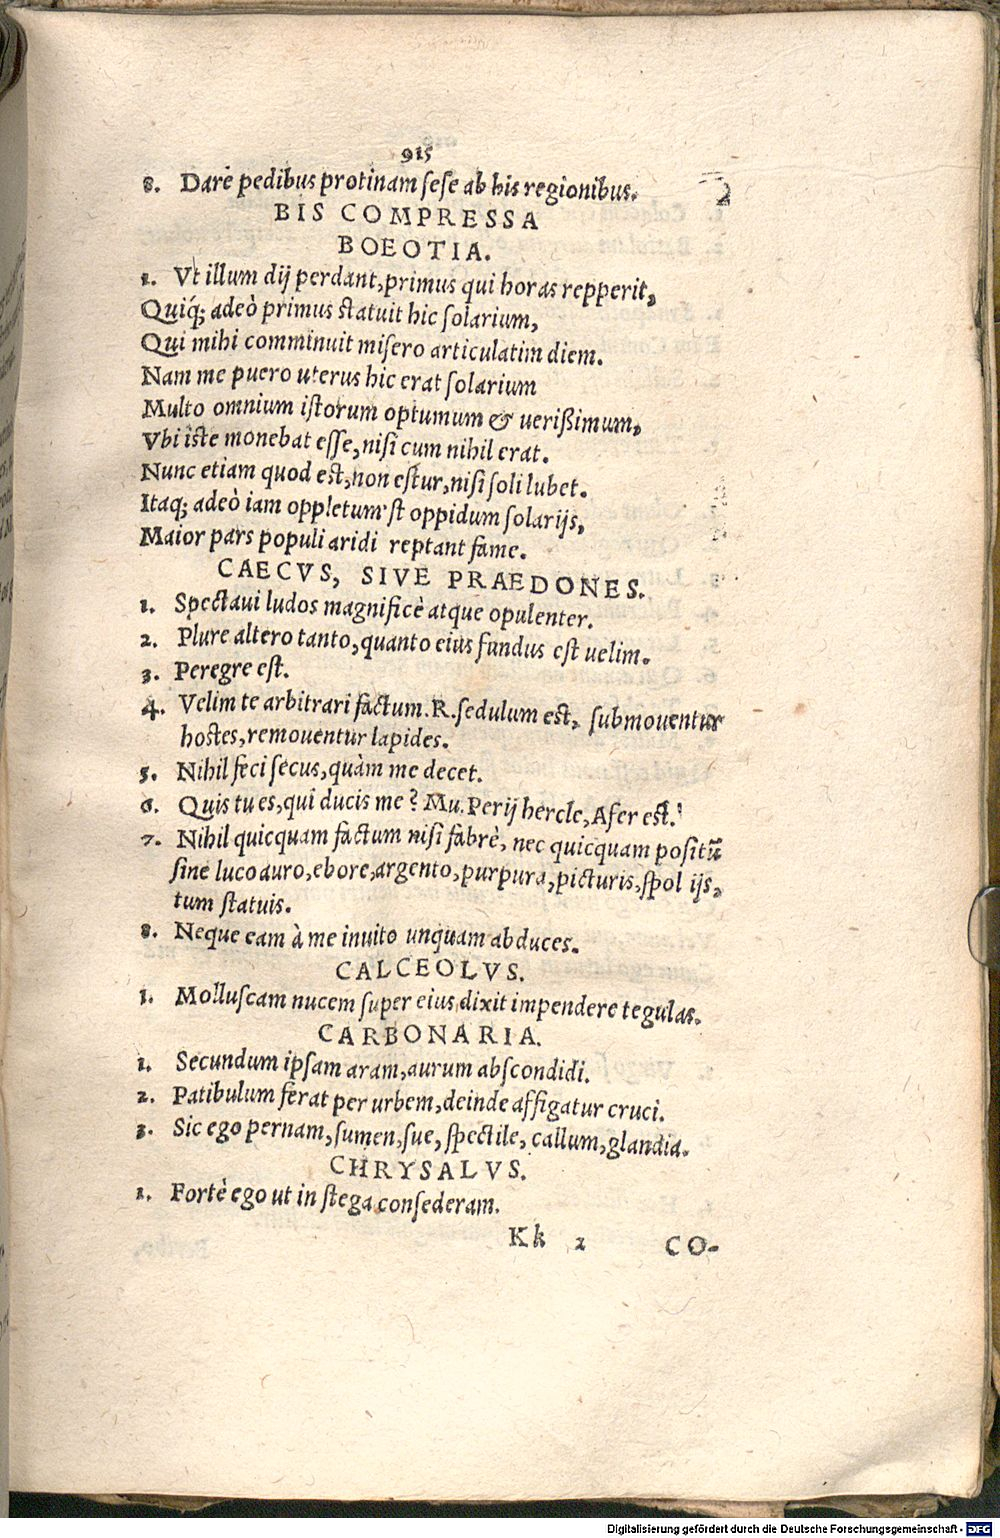 915
8. Dare pedibus protinam sese ab his regionibus.
BIS COMPRESSA
BOEOTIA.
1. Vt illum dij perdant, primus qui horas repperit,
Quiq; adeò primus statuit hic solarium,
Qui mihi comminuit misero articulatim diem.
Nam me puero uterus hic erat solarium
Multo omnium istorum optumum & uerißimum,
Vbi iste monebat esse, nisi cum nihil erat.
Nunc etiam quod est, non estur, nisi soli lubet.
Itaq; adeò iam oppletum'st oppidum solarijs,
Maior pars populi aridi reptant fame.
CAECVS, SIVE PRAEDONES.
1. Spectaui ludos magnificè atque opulenter.
2. Plure altero tanto, quanto eius fundus est uelim.
3. Peregre est.
4. Velim te arbitrari factum. R. sedulum est, submouentur
hostes, remouentur lapides.
5. Nihil feci secus, quàm me decet.
6. Quis tu es, qui ducis me? Mu. Perij hercle, Afer est.
7. Nihil quicquam factum nisi fabrè, nec quicquam positū
sine luco auro, ebore, argento, purpura, picturis, spol ijs,
tum statuis.
8. Neque eam à me inuito unquam abduces.
CALCEOLVS.
1. Molluscam nucem super eius dixit impendere tegulas.
CARBONARIA.
1. Secundum ipsam aram, aurum abscondidi.
2. Patibulum ferat per urbem, deinde affigatur cruci.
3. Sic ego pernam, sumen, sue, spectile, callum, glandia.
CHRYSALVS.
1. Fortè ego ut in stega consederam.
Kk 2 CO-
Digitalisierung gefördert durch die Deutsche Forschungsgemeinschaft - DFG